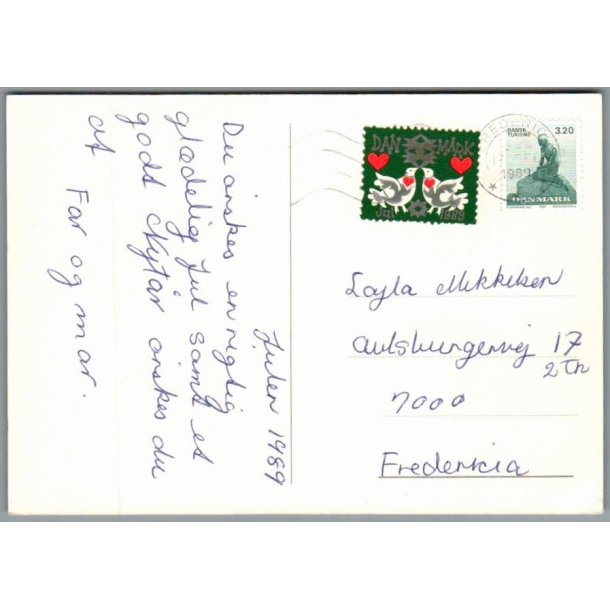 Julen 1989
Du ønskes en rigtig
glædelig Jul samt et
godt Nytår ønskes du
af Far og mor.
DANMARK
Jul 1989
FREDERICIA
1989
DANSK
TURISME
3.20
DANMARK
Layla Mikkelsen
Aulsburgervej 17
2 Th
7000
Fredericia